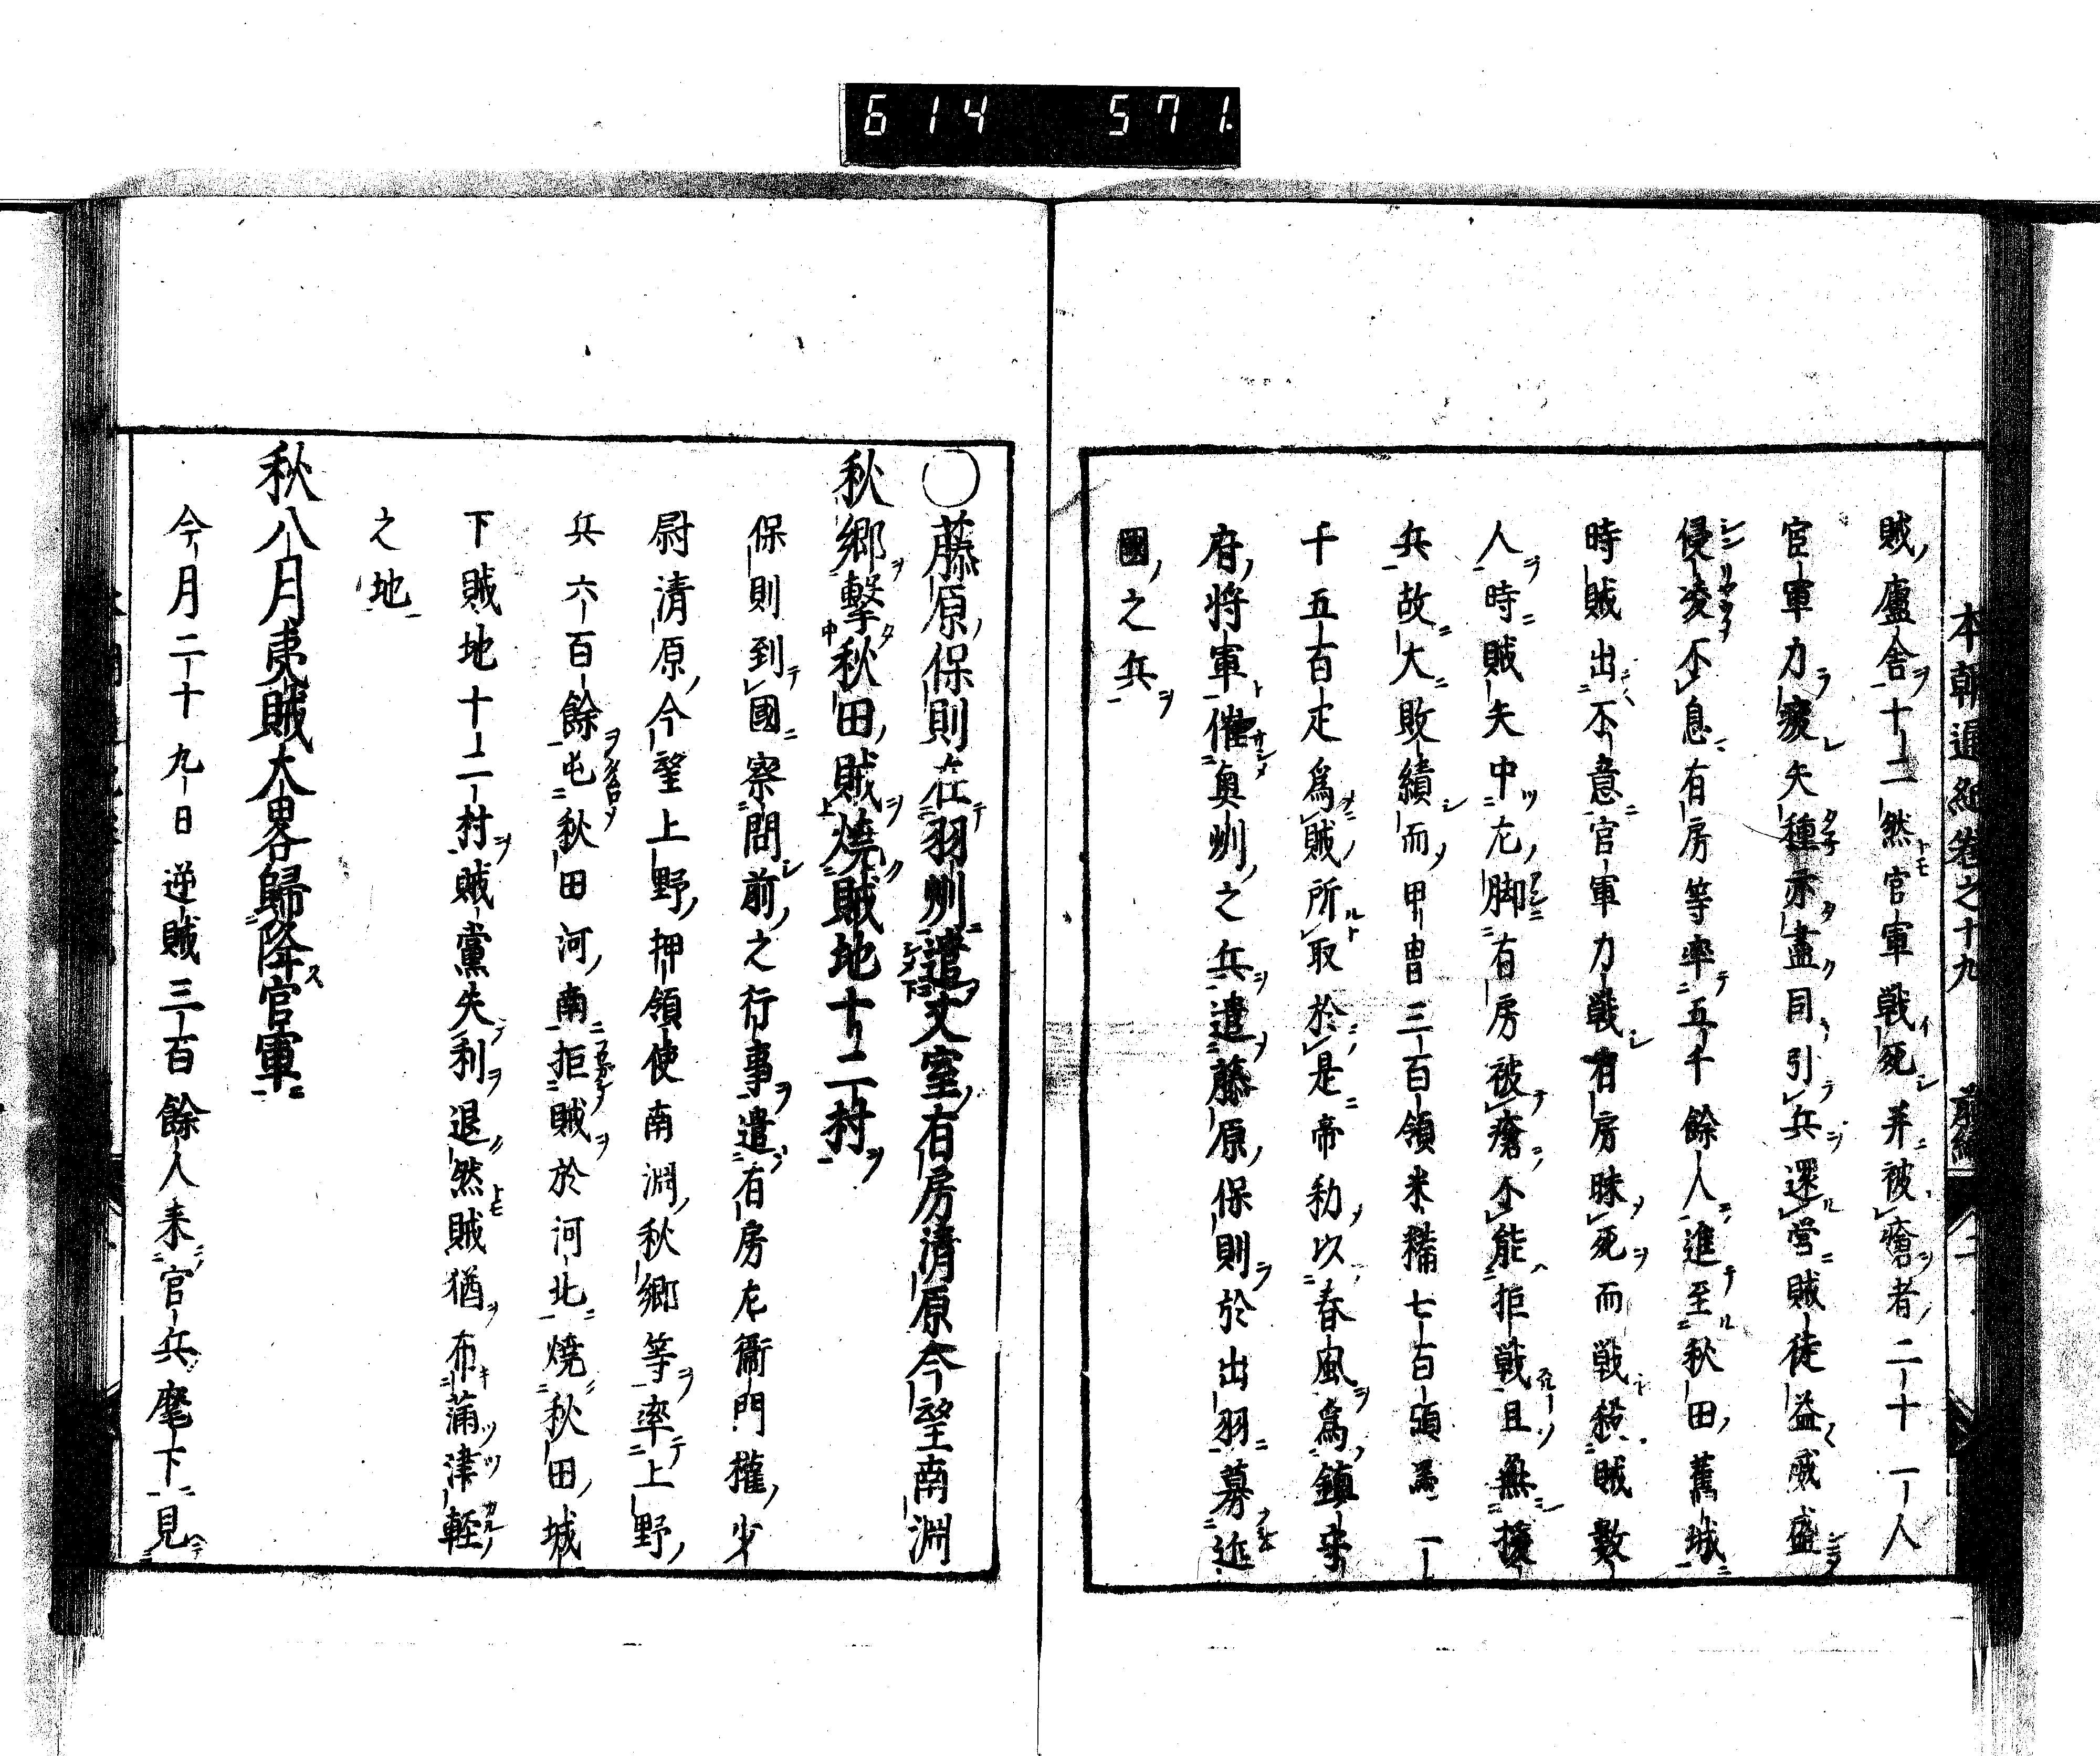 614 571
本朝通紀卷之十九 前編 二
賊盧舎十二然官軍戦死并被瘡者二十一人
官軍力疲矢種亦盡同引兵還営賊徒益威盛
侵凌不息有房等率五千餘人進至秋田舊城
時賊出不意官軍力戦有房昧死而戦殺賊数
人時賊矢中左脚有房被瘡不能拒戦且無援
兵故大敗績而甲冑三百領米糒七百碩馬一
千五百疋為賊所取於是帝勅以春風為鎮守
府将軍催奥州之兵遣藤原保則於出羽募近
國之兵
〇藤原保則在羽州遣文室有房清原令望南淵
秋郷撃秋田賊焼賊地十二村
保則到國察問前之行事遣有房左衞門權少
尉清原令望上野押領使南淵秋郷等率上野
兵六百餘屯秋田河南拒賊於河北焼秋田城
下賊地十二村賊黨失利退然賊猶布蒲津輕
之地
秋八月夷賊大畧歸降官軍
今月二十九日逆賊三百餘人来官兵麾下見